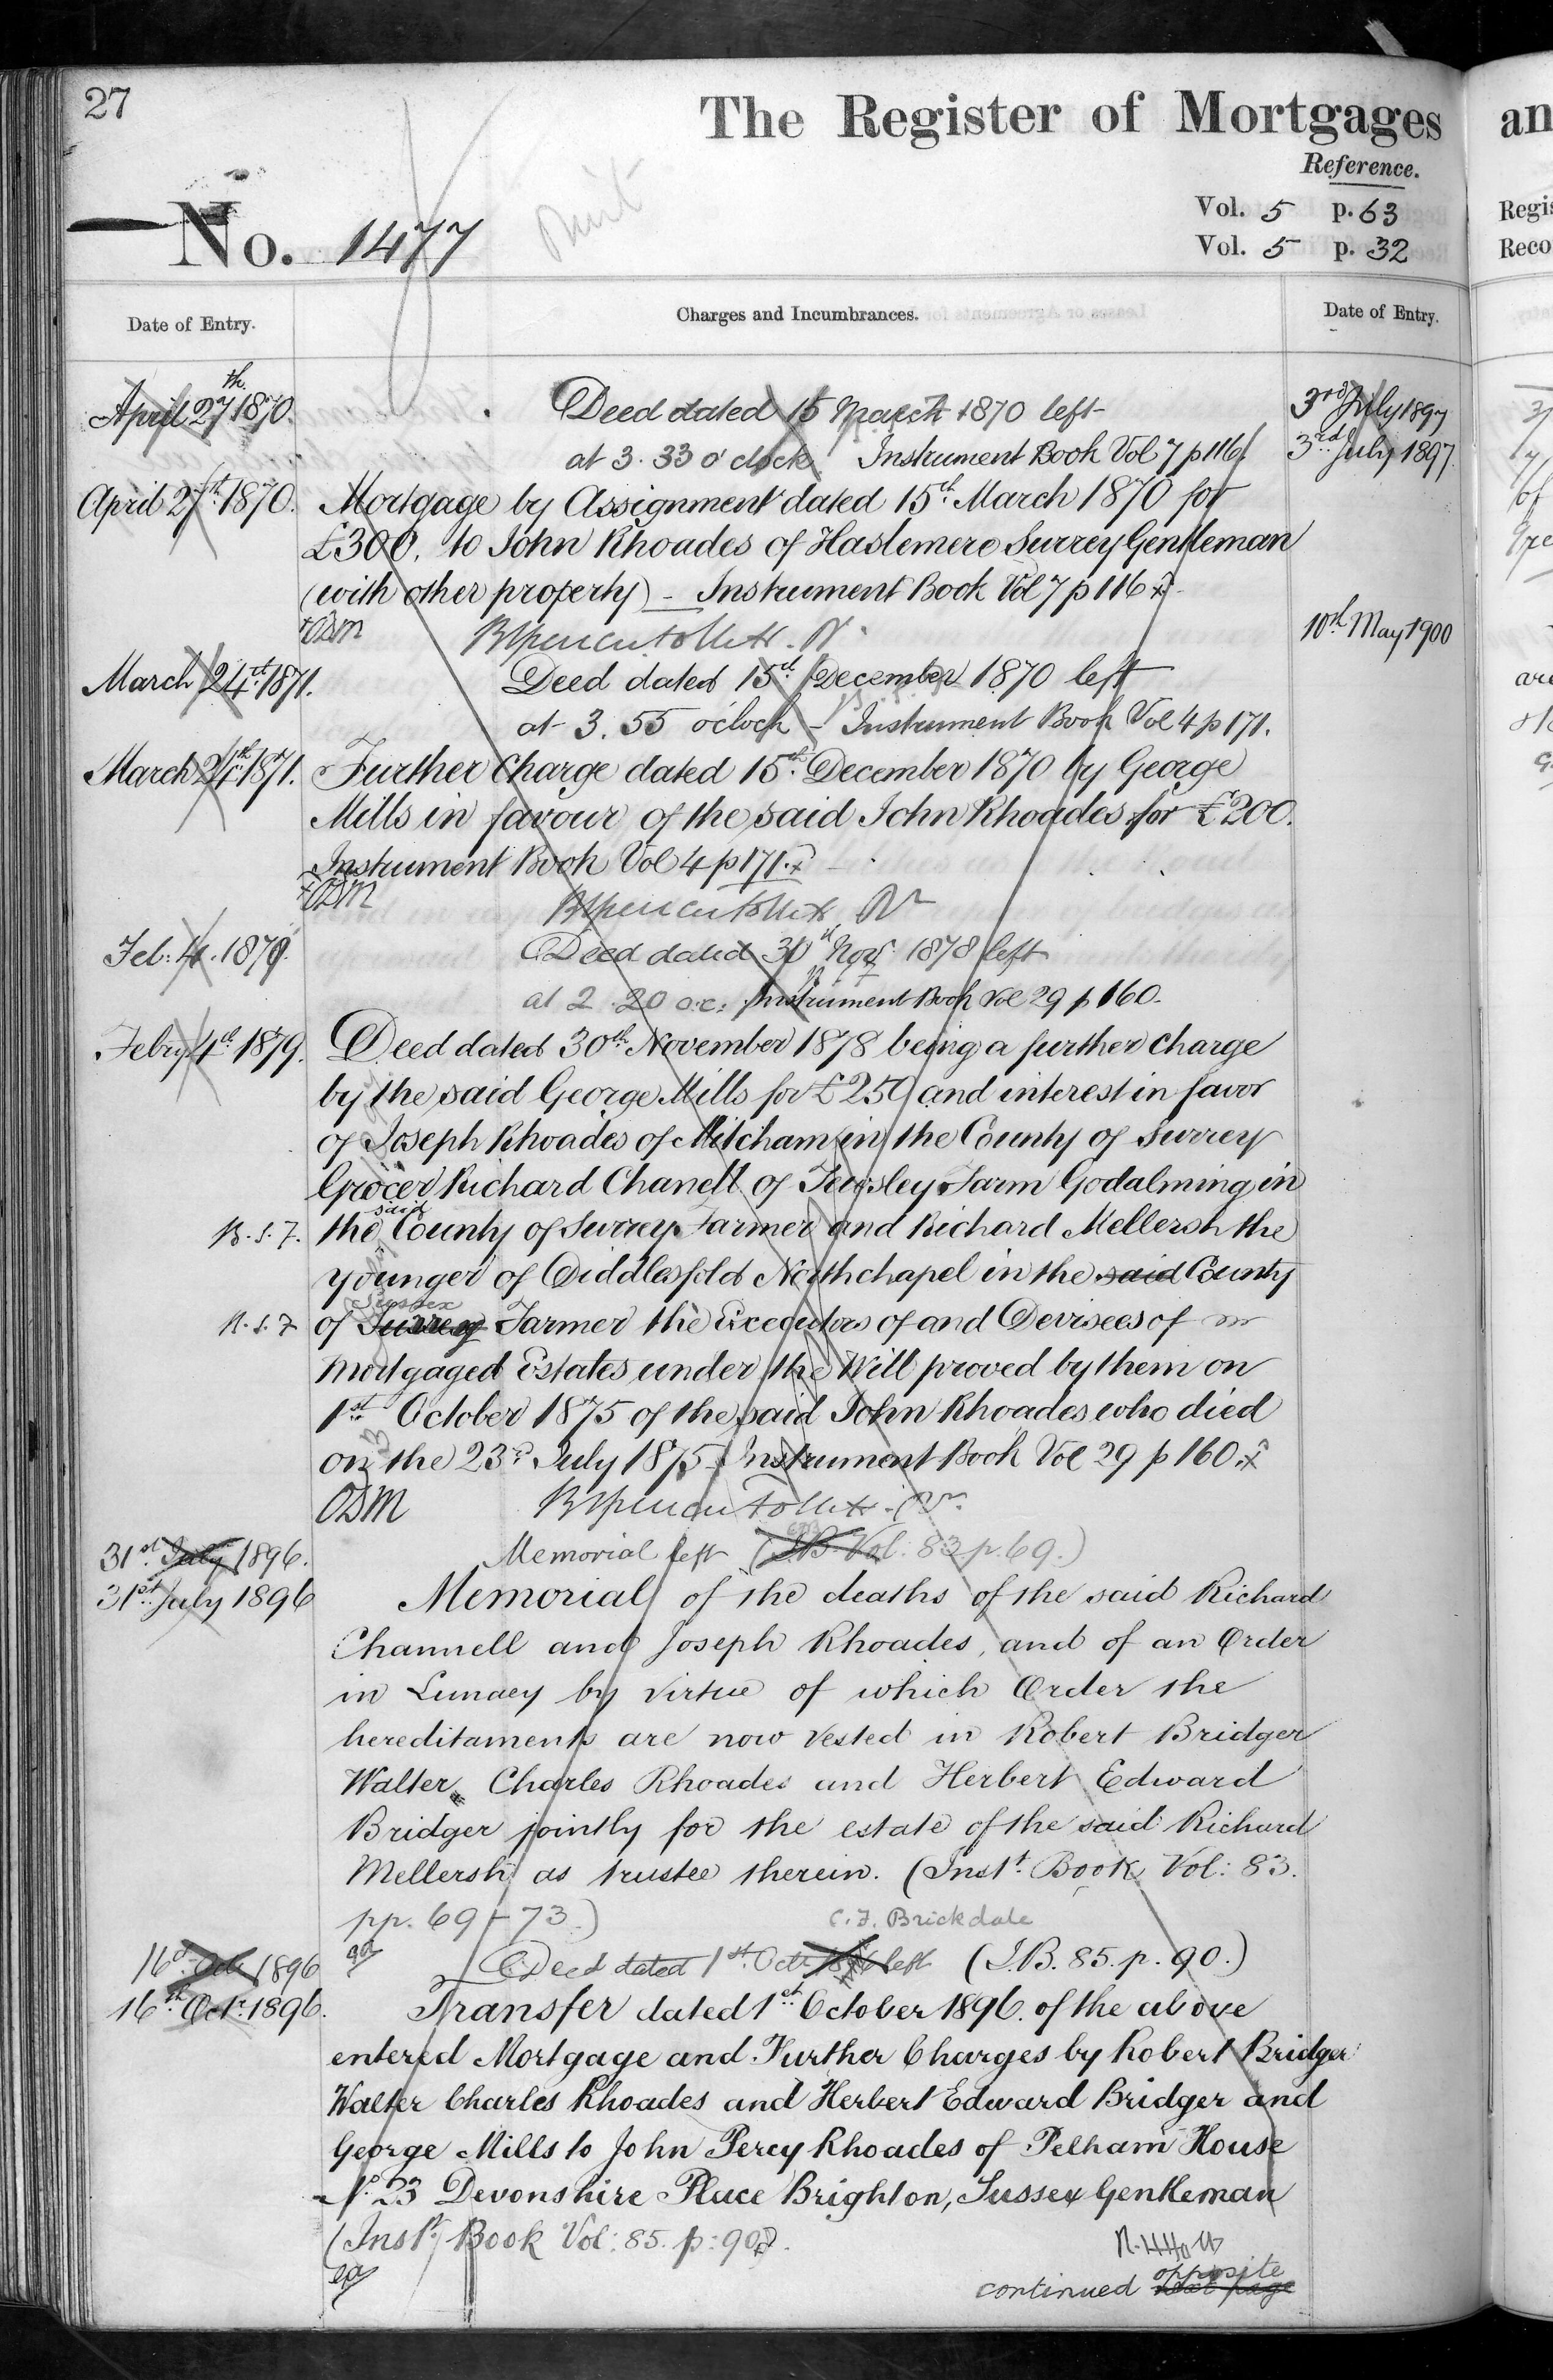 27
The Register of Mortgages
Reference.
No. 1477
Vol. 5 p. 63
Vol. 5 p. 32
Date of Entry.
Charges and Incumbrances.
Date of Entry.
April 27th 1870. Deed dated 15 March 1870 left 3rd July 1897
at 3.33 o'clock Instrument Book Vol 7 p 116 3rd July 1897
April 27th 1870. Mortgage by Assignment dated 15th March 1870 for
£300. to John Rhoades of Haslemere Surrey Gentleman
(with other property) - Instrument Book Vol 7 p 116
ODM 10th May 1900
March 24th 1871. Deed dated 15th December 1870 left
at 3.55 o'clock - Instrument Book Vol 4 p 171.
March 24th 1871. Further Charge dated 15th December 1870 by George
Mills in favour of the said John Rhoades for £200.
Instrument Book Vol 4 p 171.
ODM
Feb: 4. 1879. Deed dated 30th Novr 1878 left
at 2.20 o.c. Instrument Book Vol 29 p 160.
Febry 4th 1879. Deed dated 30th November 1878 being a further charge
by the said George Mills for £250 and interest in favor
of Joseph Rhoades of Mitcham in the County of Surrey
Grocer Richard Chanell of Tewsley Farm Godalming in
R.S.F. the said County of Surrey Farmer and Richard Mellersh the
younger of Diddlesfold Northchapel in the said County
R.S.F of Surrey Sussex Farmer the Executors of and Devisees of
mortgaged Estates under the Will proved by them on
1st October 1875 of the said John Rhoades who died
on the 23rd July 1875 Instrument Book Vol 29 p 160.
ODM
31st July 1896. Memorial left (I.B. Vol: 83 p. 69.)
31st July 1896 Memorial of the deaths of the said Richard
Channell and Joseph Rhoades, and of an Order
in Lunacy by virtue of which Order the
hereditaments are now vested in Robert Bridger
Walter Charles Rhoades and Herbert Edward
Bridger jointly for the estate of the said Richard
Mellersh as trustee therein. (Inst. Book Vol: 83.
pp. 69-73.) C.F. Brickdale
16th Oct. 1896 Deed dated 1st Octr 1896 left (I.B. 85. p. 90.)
16th Octr. 1896. Transfer dated 1st October 1896. of the above
entered Mortgage and Further Charges by Robert Bridger
Walter Charles Rhoades and Herbert Edward Bridger and
George Mills to John Percy Rhoades of Pelham House
No. 23 Devonshire Place Brighton, Sussex Gentleman
(Inst. Book Vol: 85. p: 90.
continued next page opposite
an
Regis
Reco